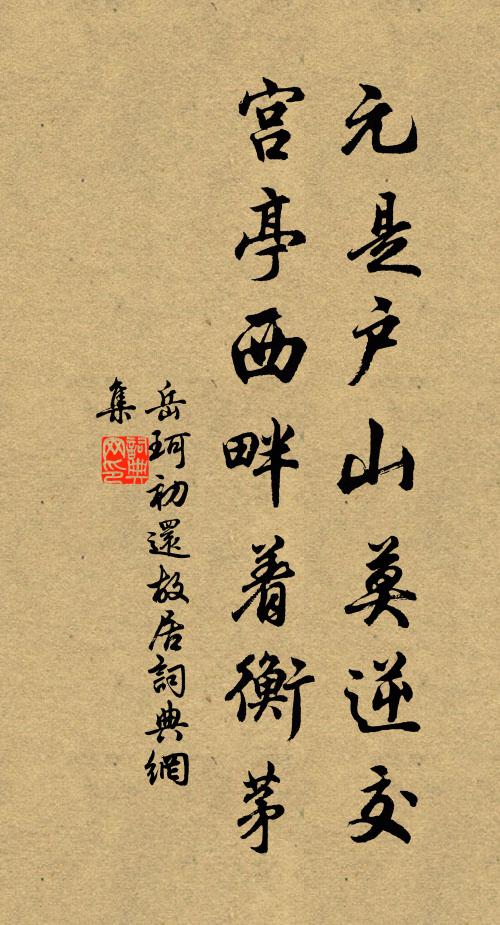 元是户山莫逆交
宫亭西畔着衡茅
岳珂初還故居詞典網
集
詞典網印